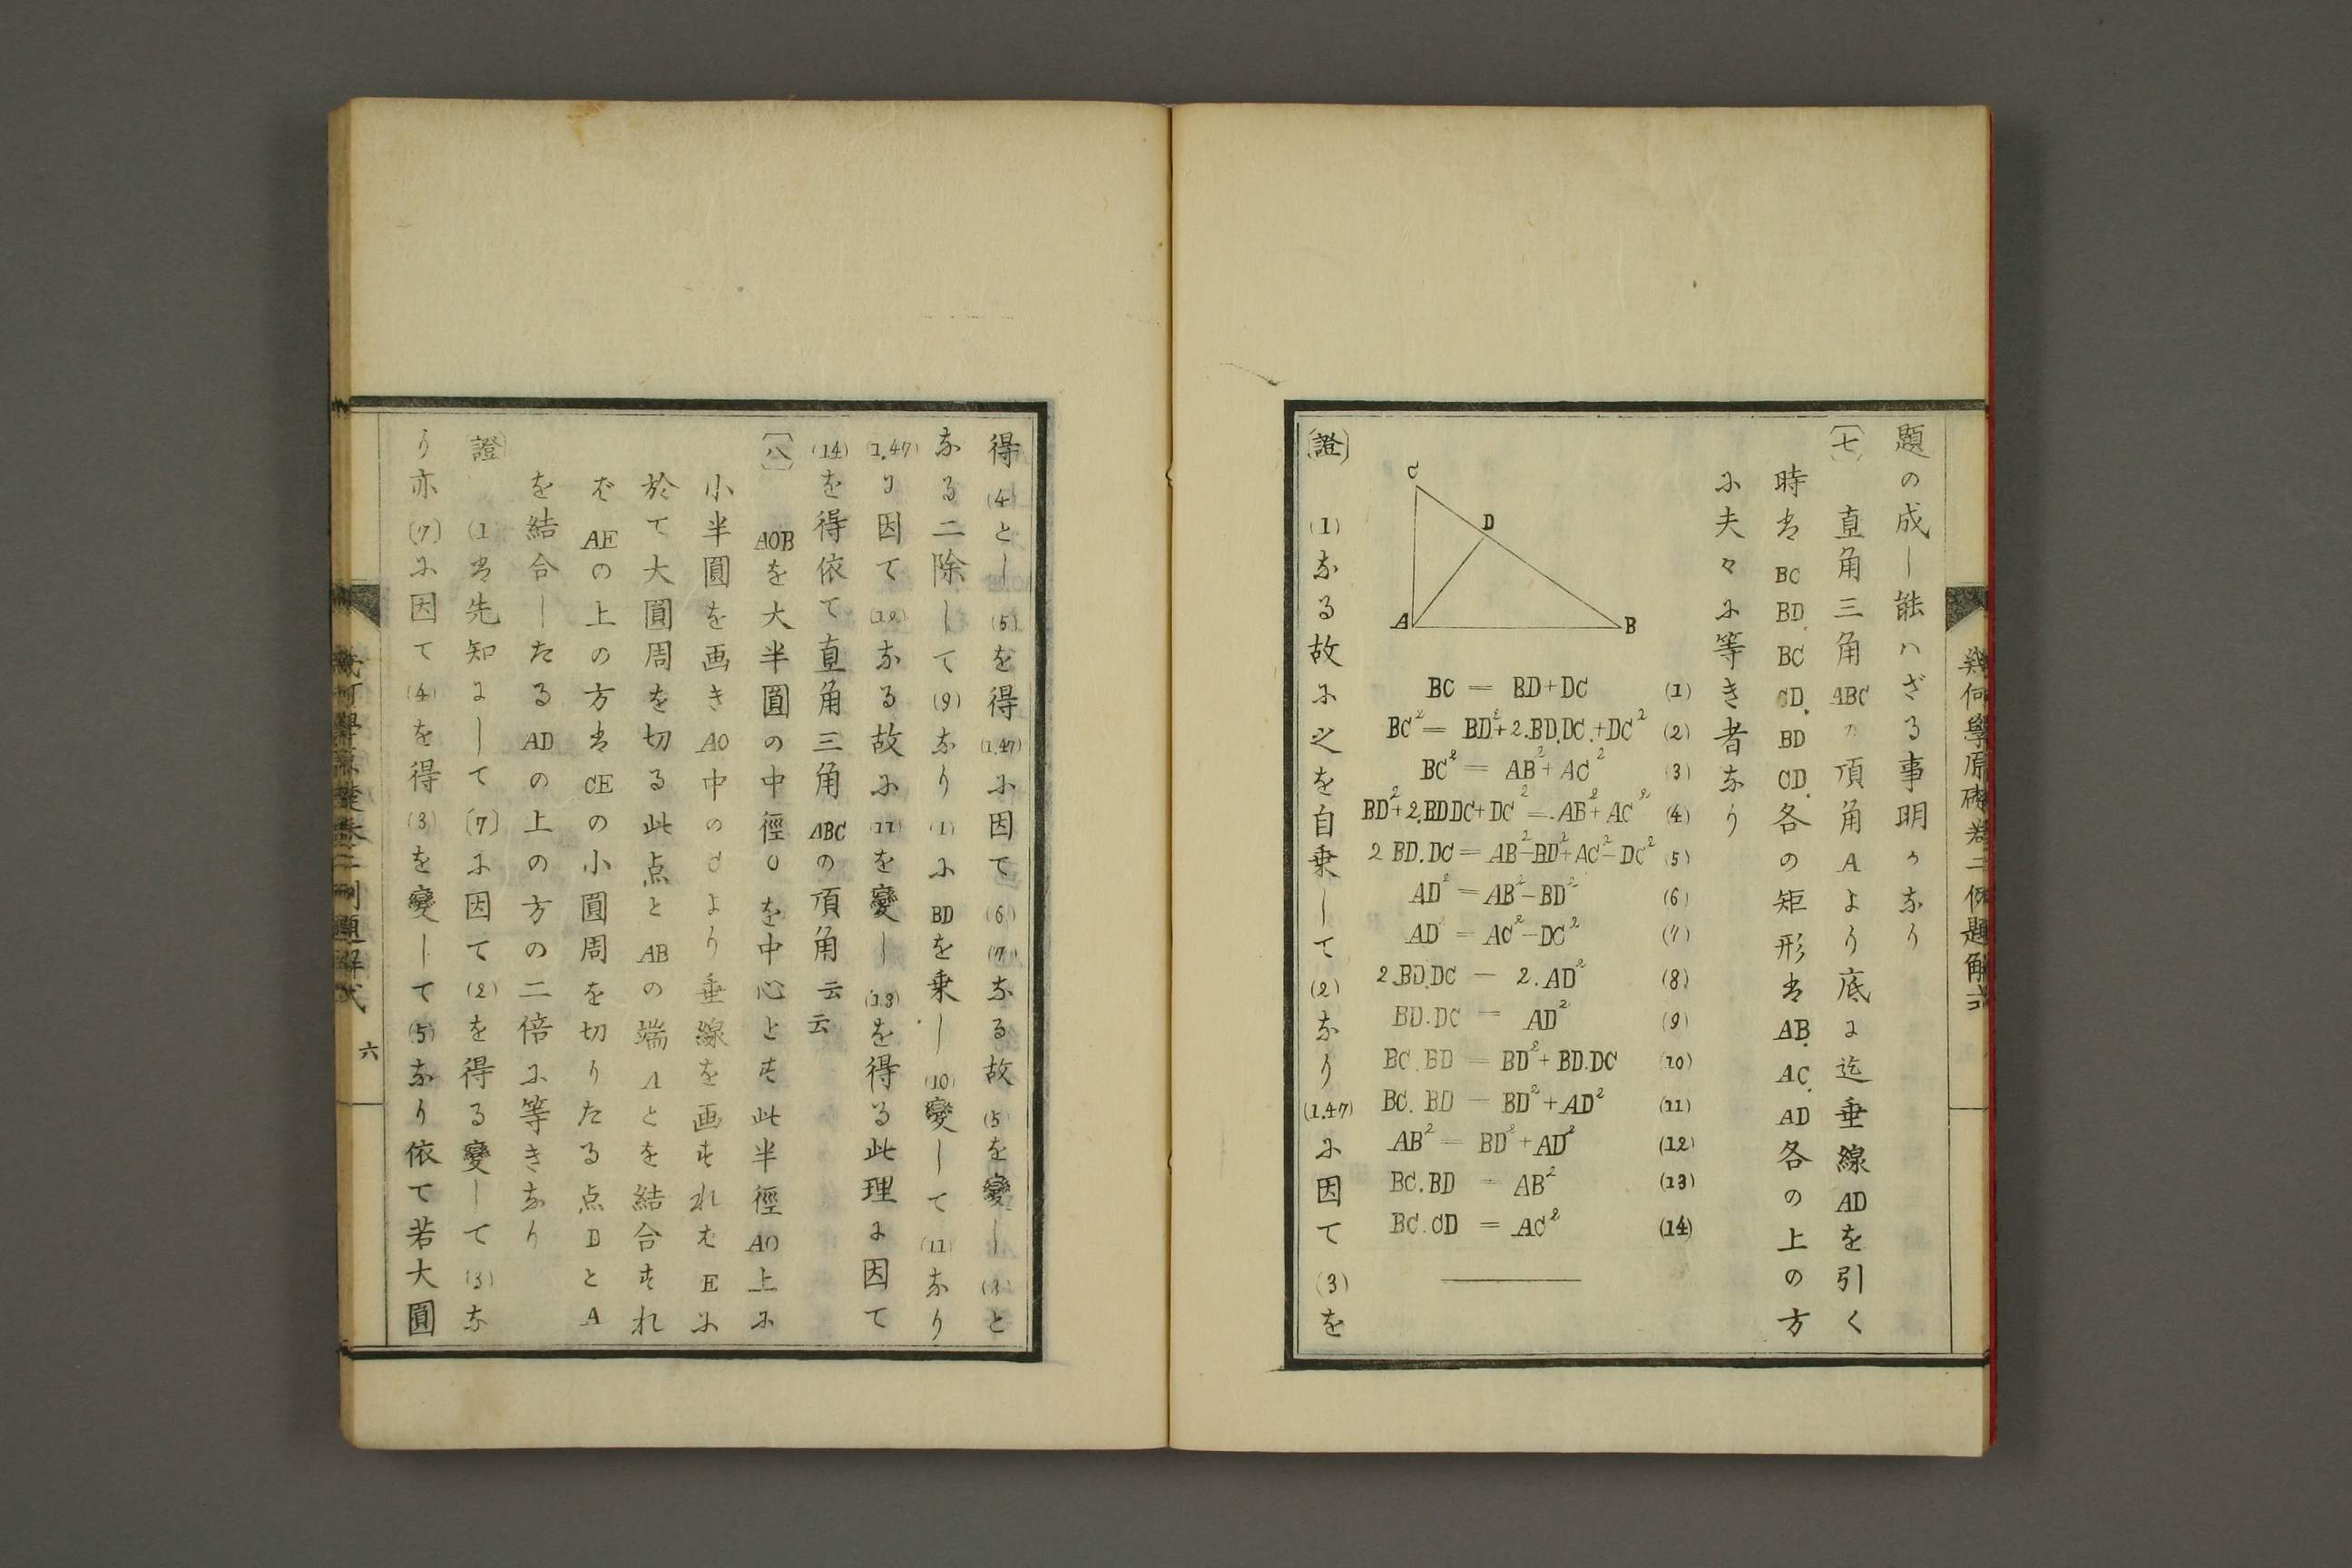 幾何學原礎卷二例題解式
題の成し能ハざる事明かなり
〔七〕 直角三角ABCの頂角Aより底に迄垂線ADを引く
時はBC BD. BC CD. BD CD.各の矩形はAB. AC. AD各の上の方
に夫々に等き者なり
C
D
A
B
BC = BD+DC (1)
BC² = BD²+2.BD.DC.+DC² (2)
BC² = AB²+AC² (3)
BD²+2.BD.DC+DC² = AB²+AC² (4)
2 BD.DC = AB²-BD²+AC²-DC² (5)
AD² = AB²-BD² (6)
AD² = AC²-DC² (7)
2.BD.DC = 2.AD² (8)
BD.DC = AD² (9)
BC.BD = BD²+BD.DC (10)
BC.BD = BD²+AD² (11)
AB² = BD²+AD² (12)
BC.BD = AB² (13)
BC.CD = AC² (14)
〔證〕 (1)なる故に之を自乗して(2)なり(1.47)に因て(3)を
得(4)とし(5)を得(1.47)に因て(6)(7)なる故(5を變し(8)と
なる二除して(9)なり(1)にBDを乗し(10)變して(11)なり
(1.47)に因て(12)なる故に(11)を變し(13)を得る此理に因て
(14)を得依て直角三角ABCの頂角云云
〔八〕 AOBを大半圓の中徑Oを中心とす此半徑AO上に
小半圓を画きAO中のCより垂線を画すればEに
於て大圓周を切る此点とABの端Aとを結合すれ
ばAEの上の方はCEの小圓周を切りたる点DとA
を結合したるADの上の方の二倍に等きなり
〔證〕 (1は先知にして〔7〕に因て(2)を得る變して(3)な
り亦〔7〕に因て(4)を得(3)を變して(5)なり依て若大圓
幾何學原礎卷二例題解式 六